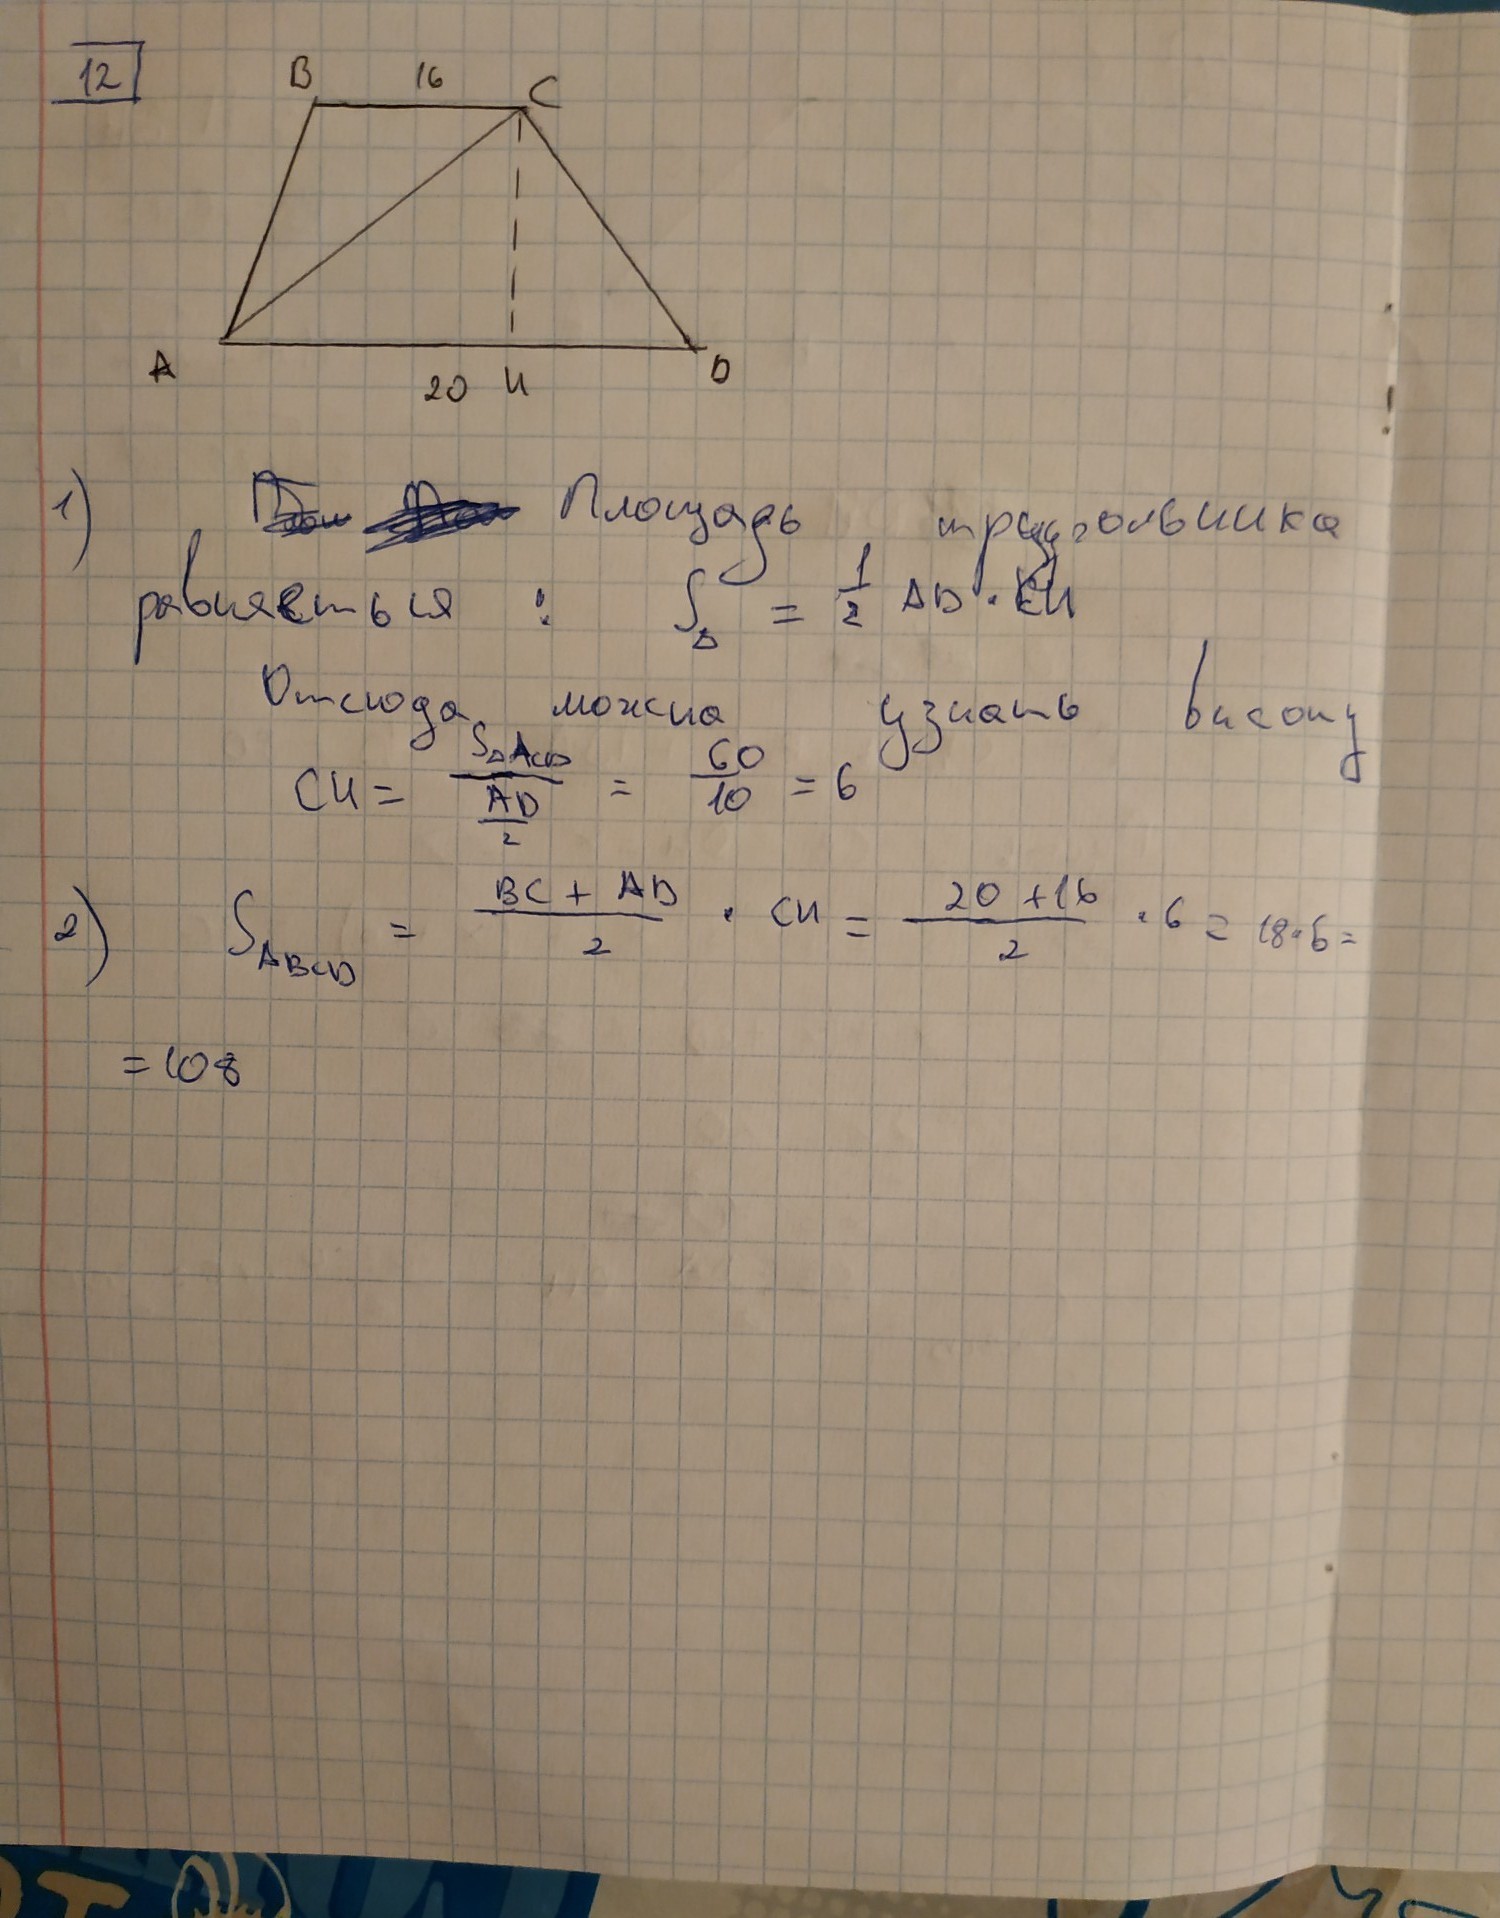 12
B 16 C
A 20 H D
1) Площадь треугольника
равняеться : S△ = 1/2 AD · CH
Отсюда можна узнать высоту
CH = S△ACD / (AD/2) = 60/10 = 6
2) S ABCD = (BC + AD)/2 · CH = (20 + 16)/2 · 6 = 18 · 6 =
= 108